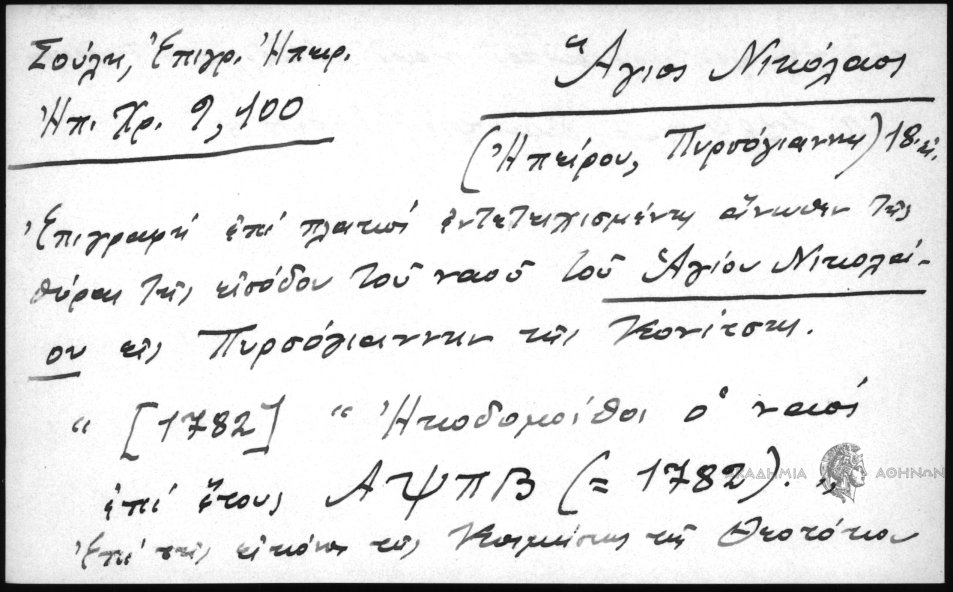 Σούλη, Ἐπιγρ. Ἠπειρ.
Ἠπ. Χρ. 9, 100
Ἅγιος Νικόλαος
(Ἠπείρου, Πυρσόγιαννη) 18. αἰ.
Ἐπιγραφή ἐπί πλακός ἐντετειχισμένης ἄνωθεν τῆς
θύρας τῆς εἰσόδου τοῦ ναοῦ τοῦ Ἁγίου Νικολά-
ου εἰς Πυρσόγιαννην τῆς Κονίτσης.
" [1782] " Ἠκοδομοίθοι ὁ ναός
ἐπί ἔτους ΑΨΠΒ (= 1782). "
Ἐπί τῆς εἰκόνος τῆς Κοιμήσεως τῆς Θεοτόκου
ΑΚΑΔΗΜΙΑ ΑΘΗΝΩΝ